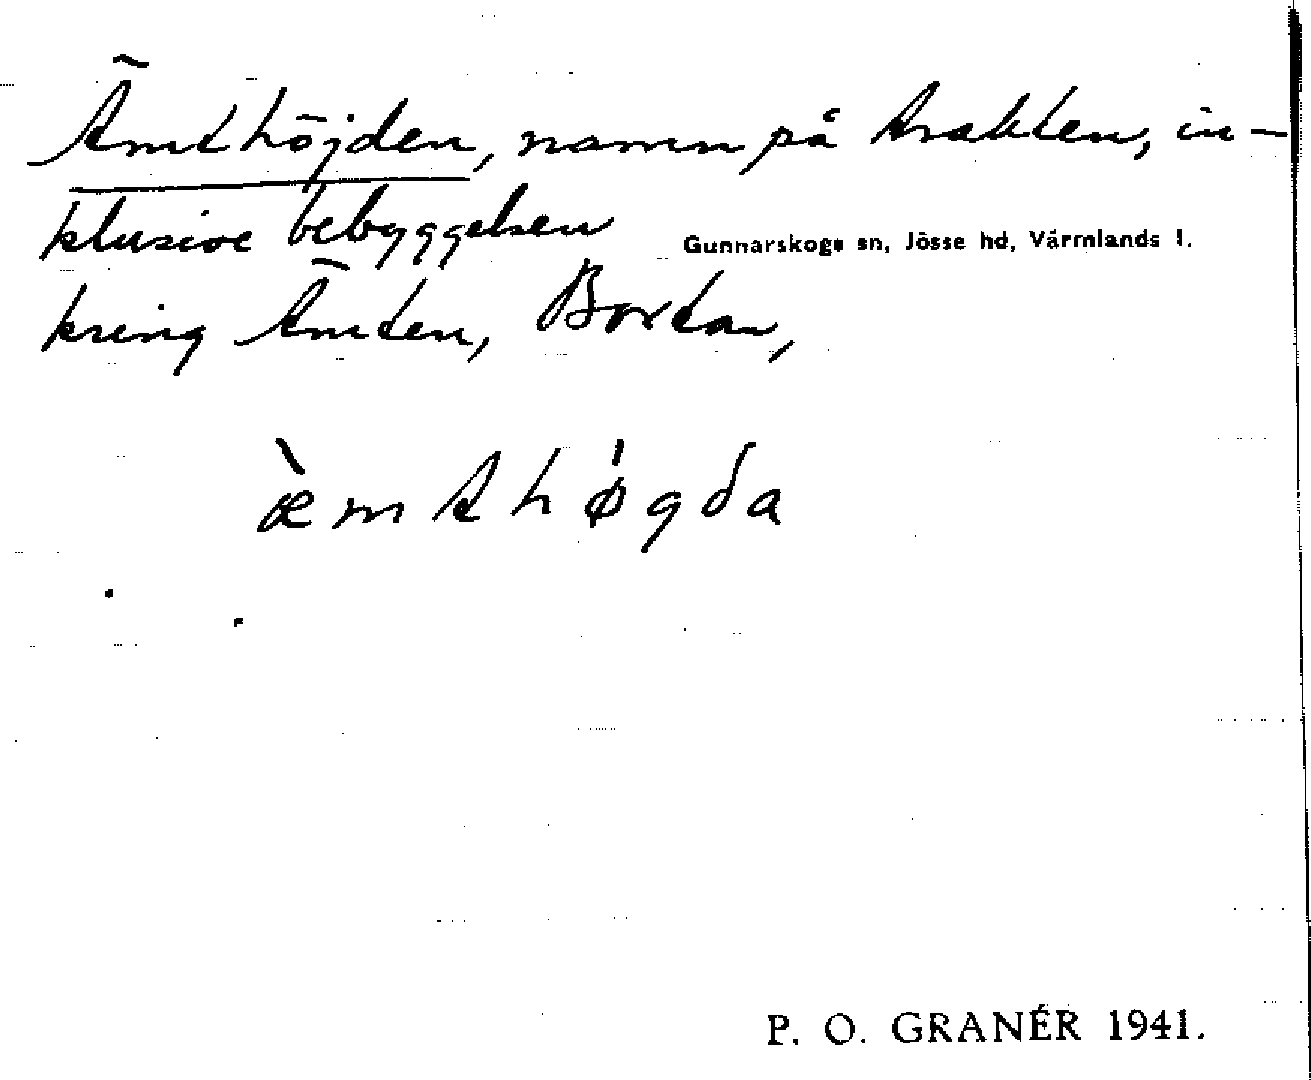 Ämthöjden, namn på trakten, in-
klusive bebyggelsen
Gunnarskogs sn, Jösse hd, Värmlands l.
kring Ämten, Bortan,
æ̀mthǿgda
P. O. GRANÉR 1941.